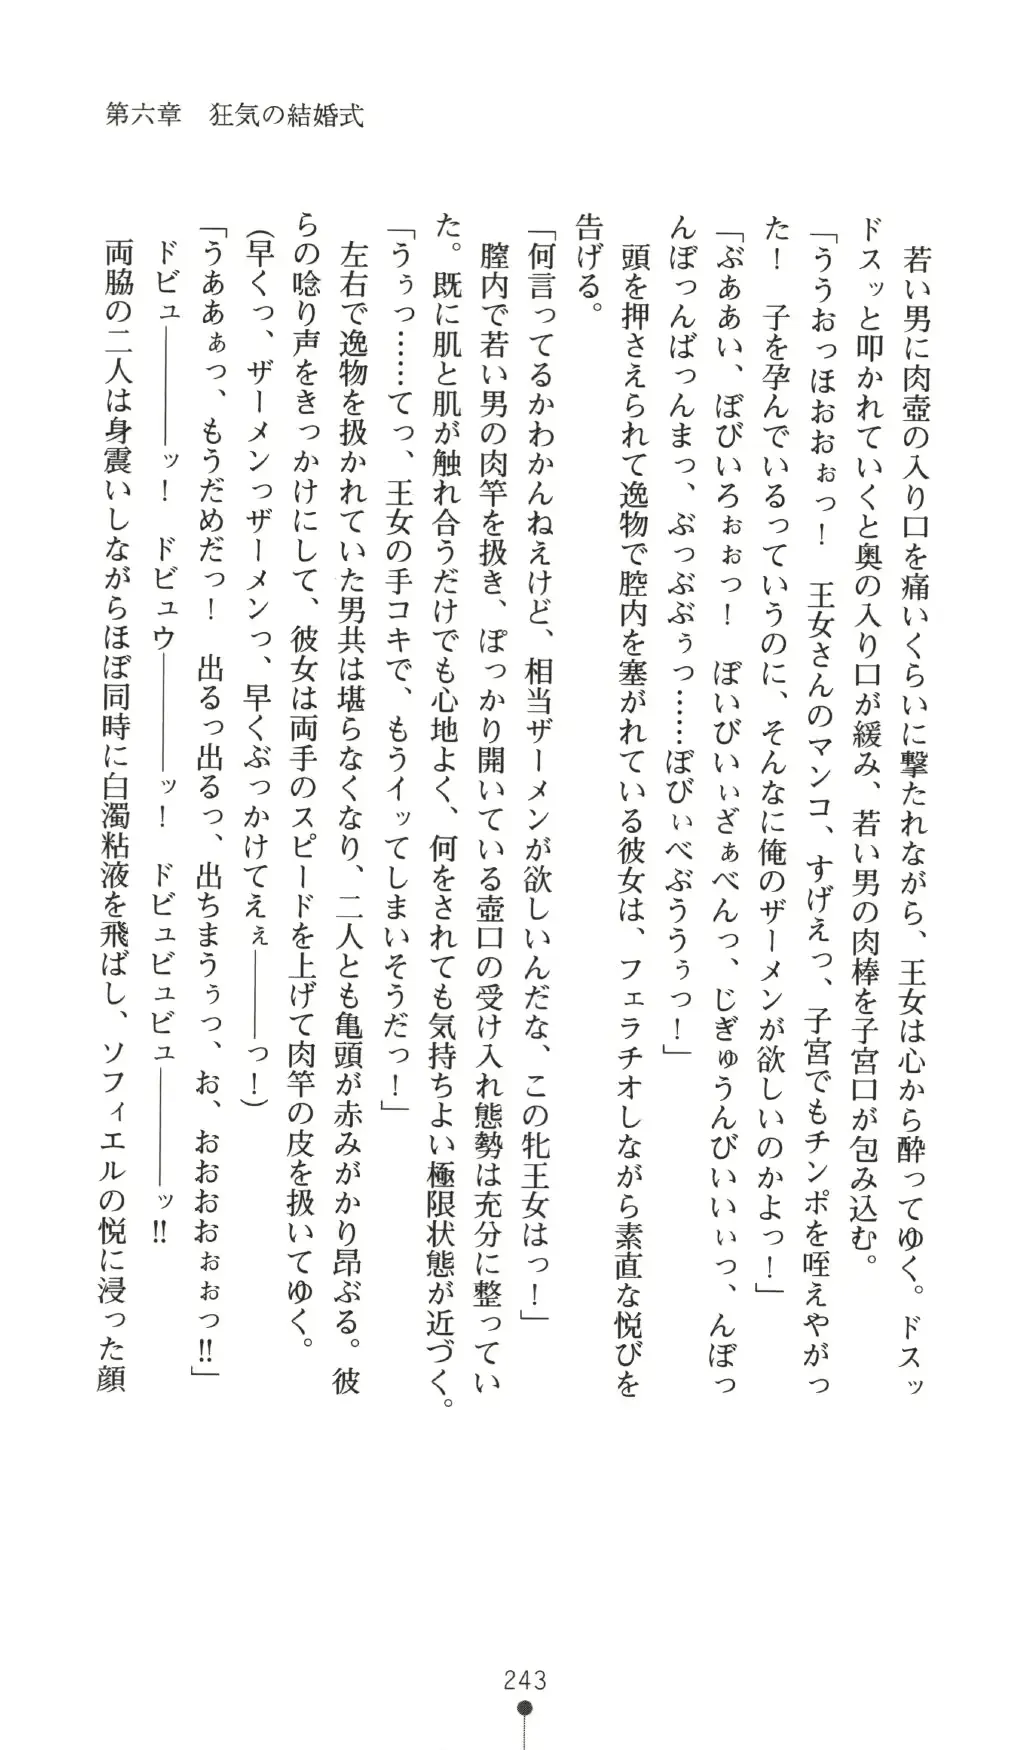 第六章　狂気の結婚式
　若い男に肉壺の入り口を痛いくらいに撃たれながら、王女は心から酔ってゆく。ドスッ
ドスッと叩かれていくと奥の入り口が緩み、若い男の肉棒を子宮口が包み込む。
「ううおっほおおぉっ！　王女さんのマンコ、すげえっ、子宮でもチンポを咥えやがっ
た！　子を孕んでいるっていうのに、そんなに俺のザーメンが欲しいのかよっ！」
「ぶああい、ぼびいろぉぉっ！　ぼいびいぃざぁべんっ、じぎゅうんびいいぃっ、んぼっ
んぼっんばっんまっ、ぶっぶぶぅっ……ぼびぃべぶううぅっ！」
　頭を押さえられて逸物で腔内を塞がれている彼女は、フェラチオしながら素直な悦びを
告げる。
「何言ってるかわかんねえけど、相当ザーメンが欲しいんだな、この牝王女はっ！」
　膣内で若い男の肉竿を扱き、ぽっかり開いている壺口の受け入れ態勢は充分に整ってい
た。既に肌と肌が触れ合うだけでも心地よく、何をされても気持ちよい極限状態が近づく。
「うぅっ……てっ、王女の手コキで、もうイッてしまいそうだっ！」
　左右で逸物を扱かれていた男共は堪らなくなり、二人とも亀頭が赤みがかり昂ぶる。彼
らの唸り声をきっかけにして、彼女は両手のスピードを上げて肉竿の皮を扱いてゆく。
(早くっ、ザーメンっザーメンっ、早くぶっかけてえぇ――――っ！)
「うああぁっ、もうだめだっ！　出るっ出るっ、出ちまうぅっ、お、おおおおぉぉっ‼」
　ドビュ――――ッ！　ドビュウ――――ッ！　ドビュビュビュ――――ッ‼
　両脇の二人は身震いしながらほぼ同時に白濁粘液を飛ばし、ソフィエルの悦に浸った顔
243